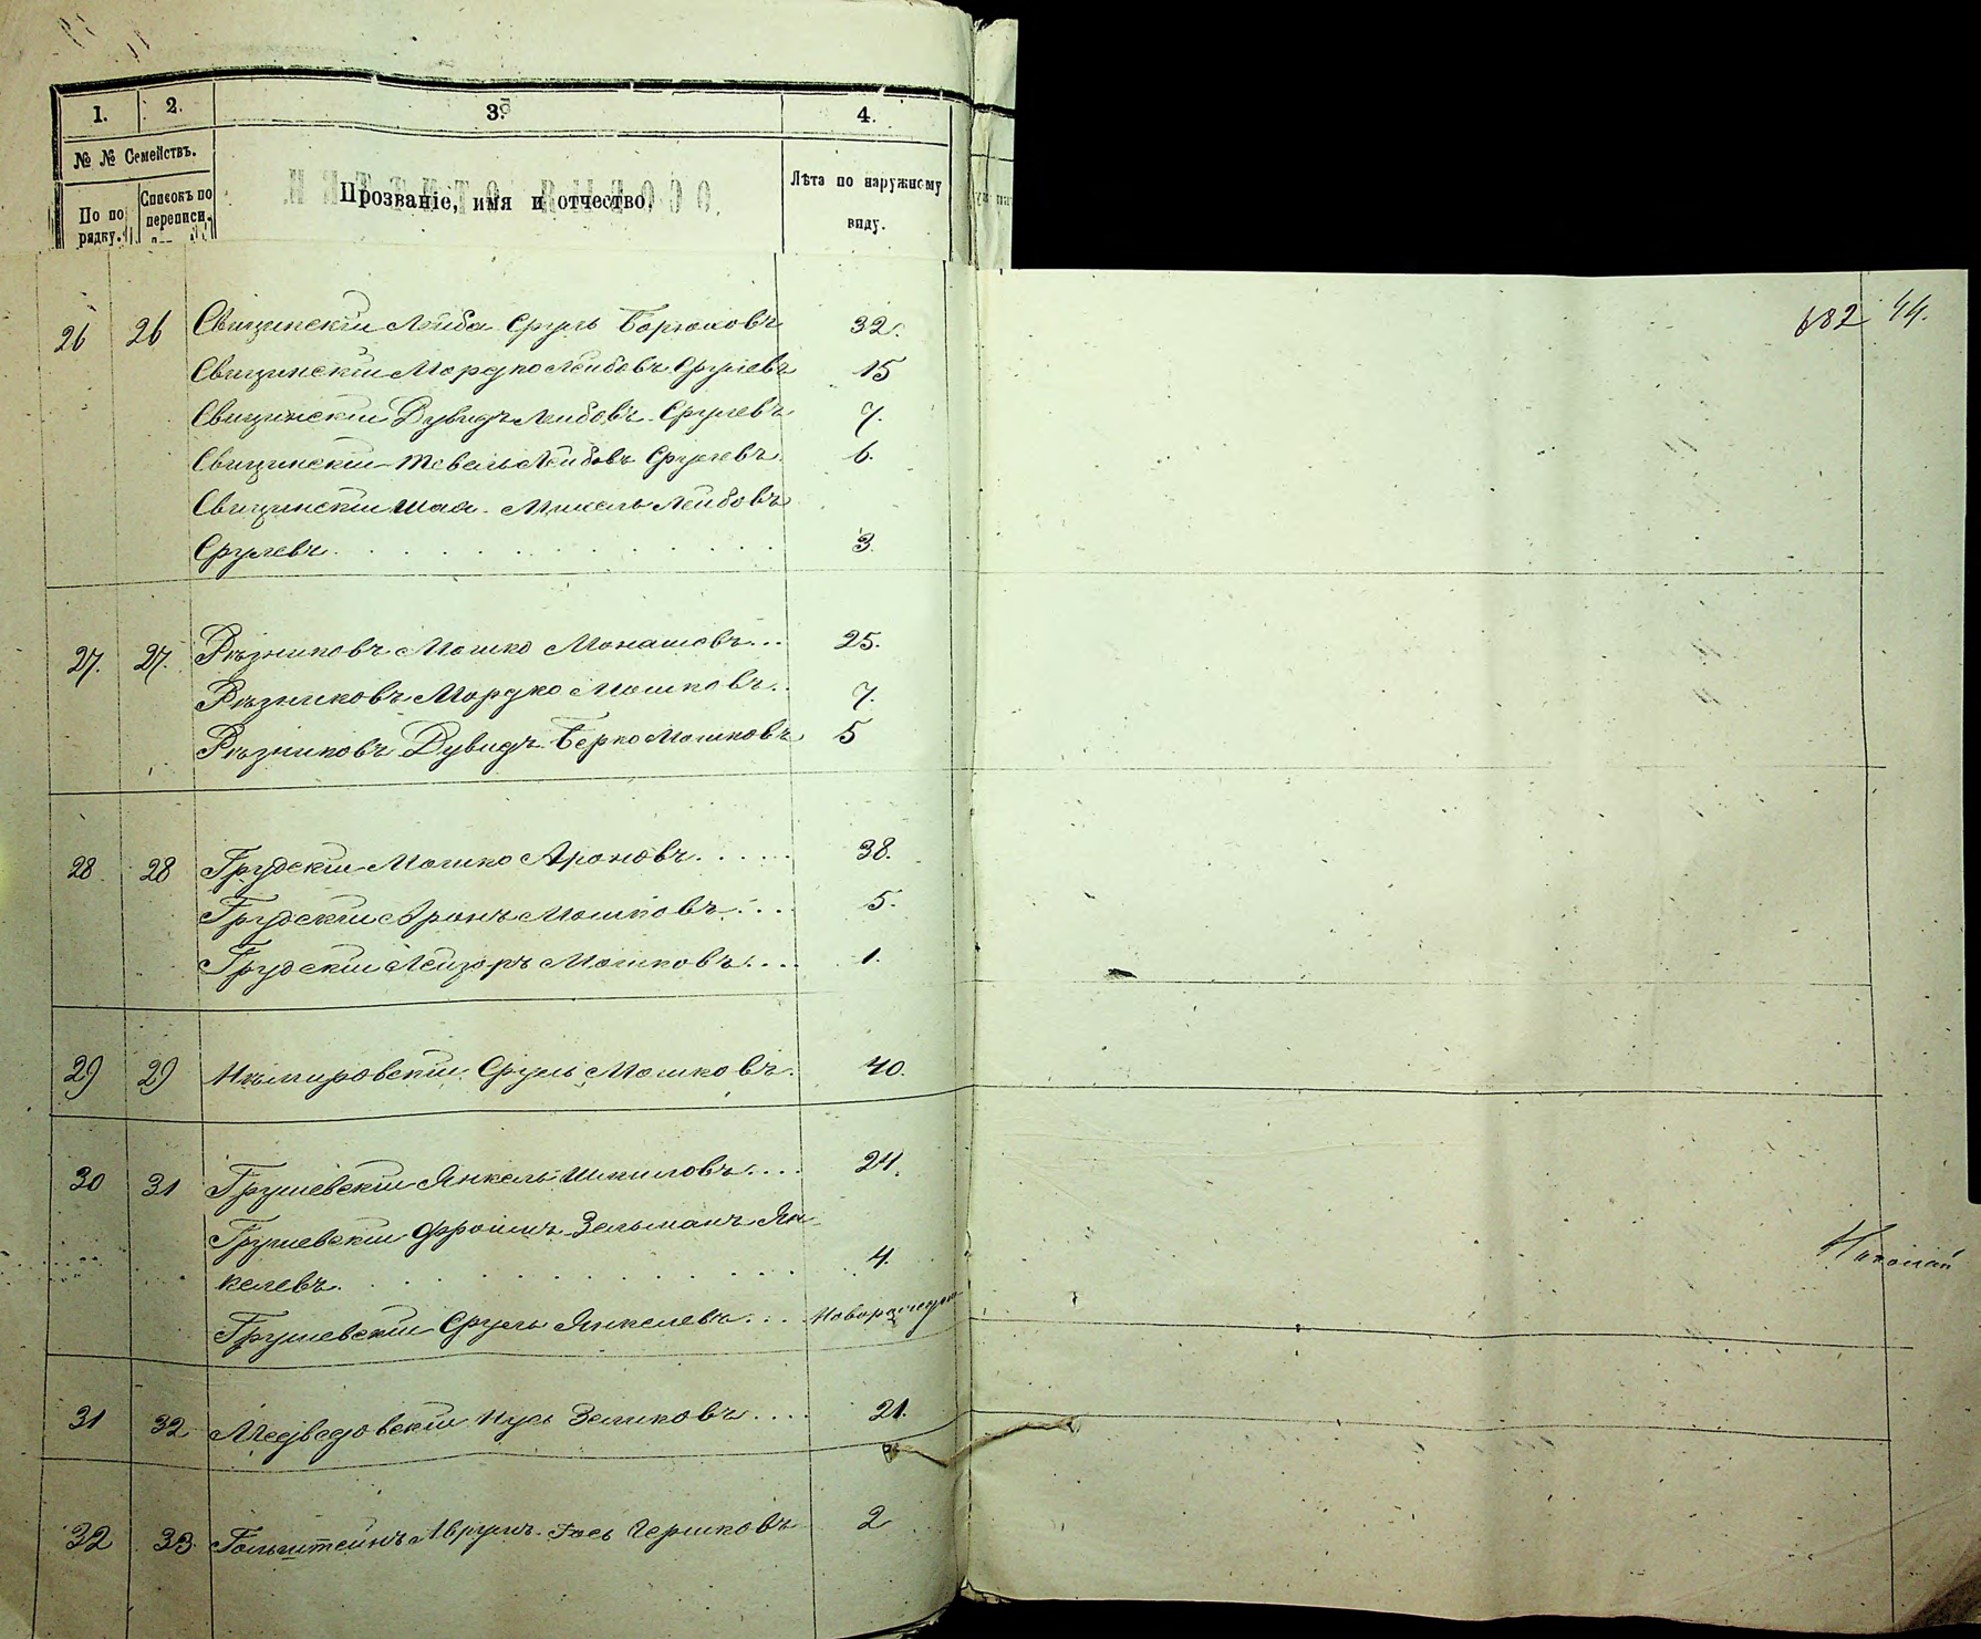 1.
2.
3.
4.
№ № Семействъ.
По по
рядку.
Списокъ по
переписи.
Прозваніе, имя и отчество.
Лѣта по наружному
виду.
682 44.
26 26 Свищинскій Лейба Сруль Борюховъ 32.
Свищинскій Мордко Лейбовъ Срулевъ 15
Свищинскій Дувидъ Лейбовъ Срулевъ 7.
Свищинскій Тевель Лейбовъ Срулевъ 6.
Свищинскій Шая Михель Лейбовъ
Срулевъ 3.
27. 27. Рѣзниковъ Мошко Монашовъ 25.
Рѣзниковъ Мордко Мошковъ 7.
Рѣзниковъ Дувидъ Берко Мошковъ 5
28. 28 Грудскій Мошко Ароновъ 38.
Грудскій Аронъ Мошковъ 5.
Грудскій Лейзоръ Мошковъ 1.
29 29 Нѣмировскій Сруль Мошковъ. 40.
30 31 Грушевскій Янкель Шмиловъ 24.
Грушевскій Фроимъ Зельманъ Ян-
келевъ. 4.
Грушевскій Сруль Янкелевъ
31 32 Медведовскій Нусь Зеликовъ 21.
32 33 Гольштейнъ Аврумъ Гось Гершковъ 2